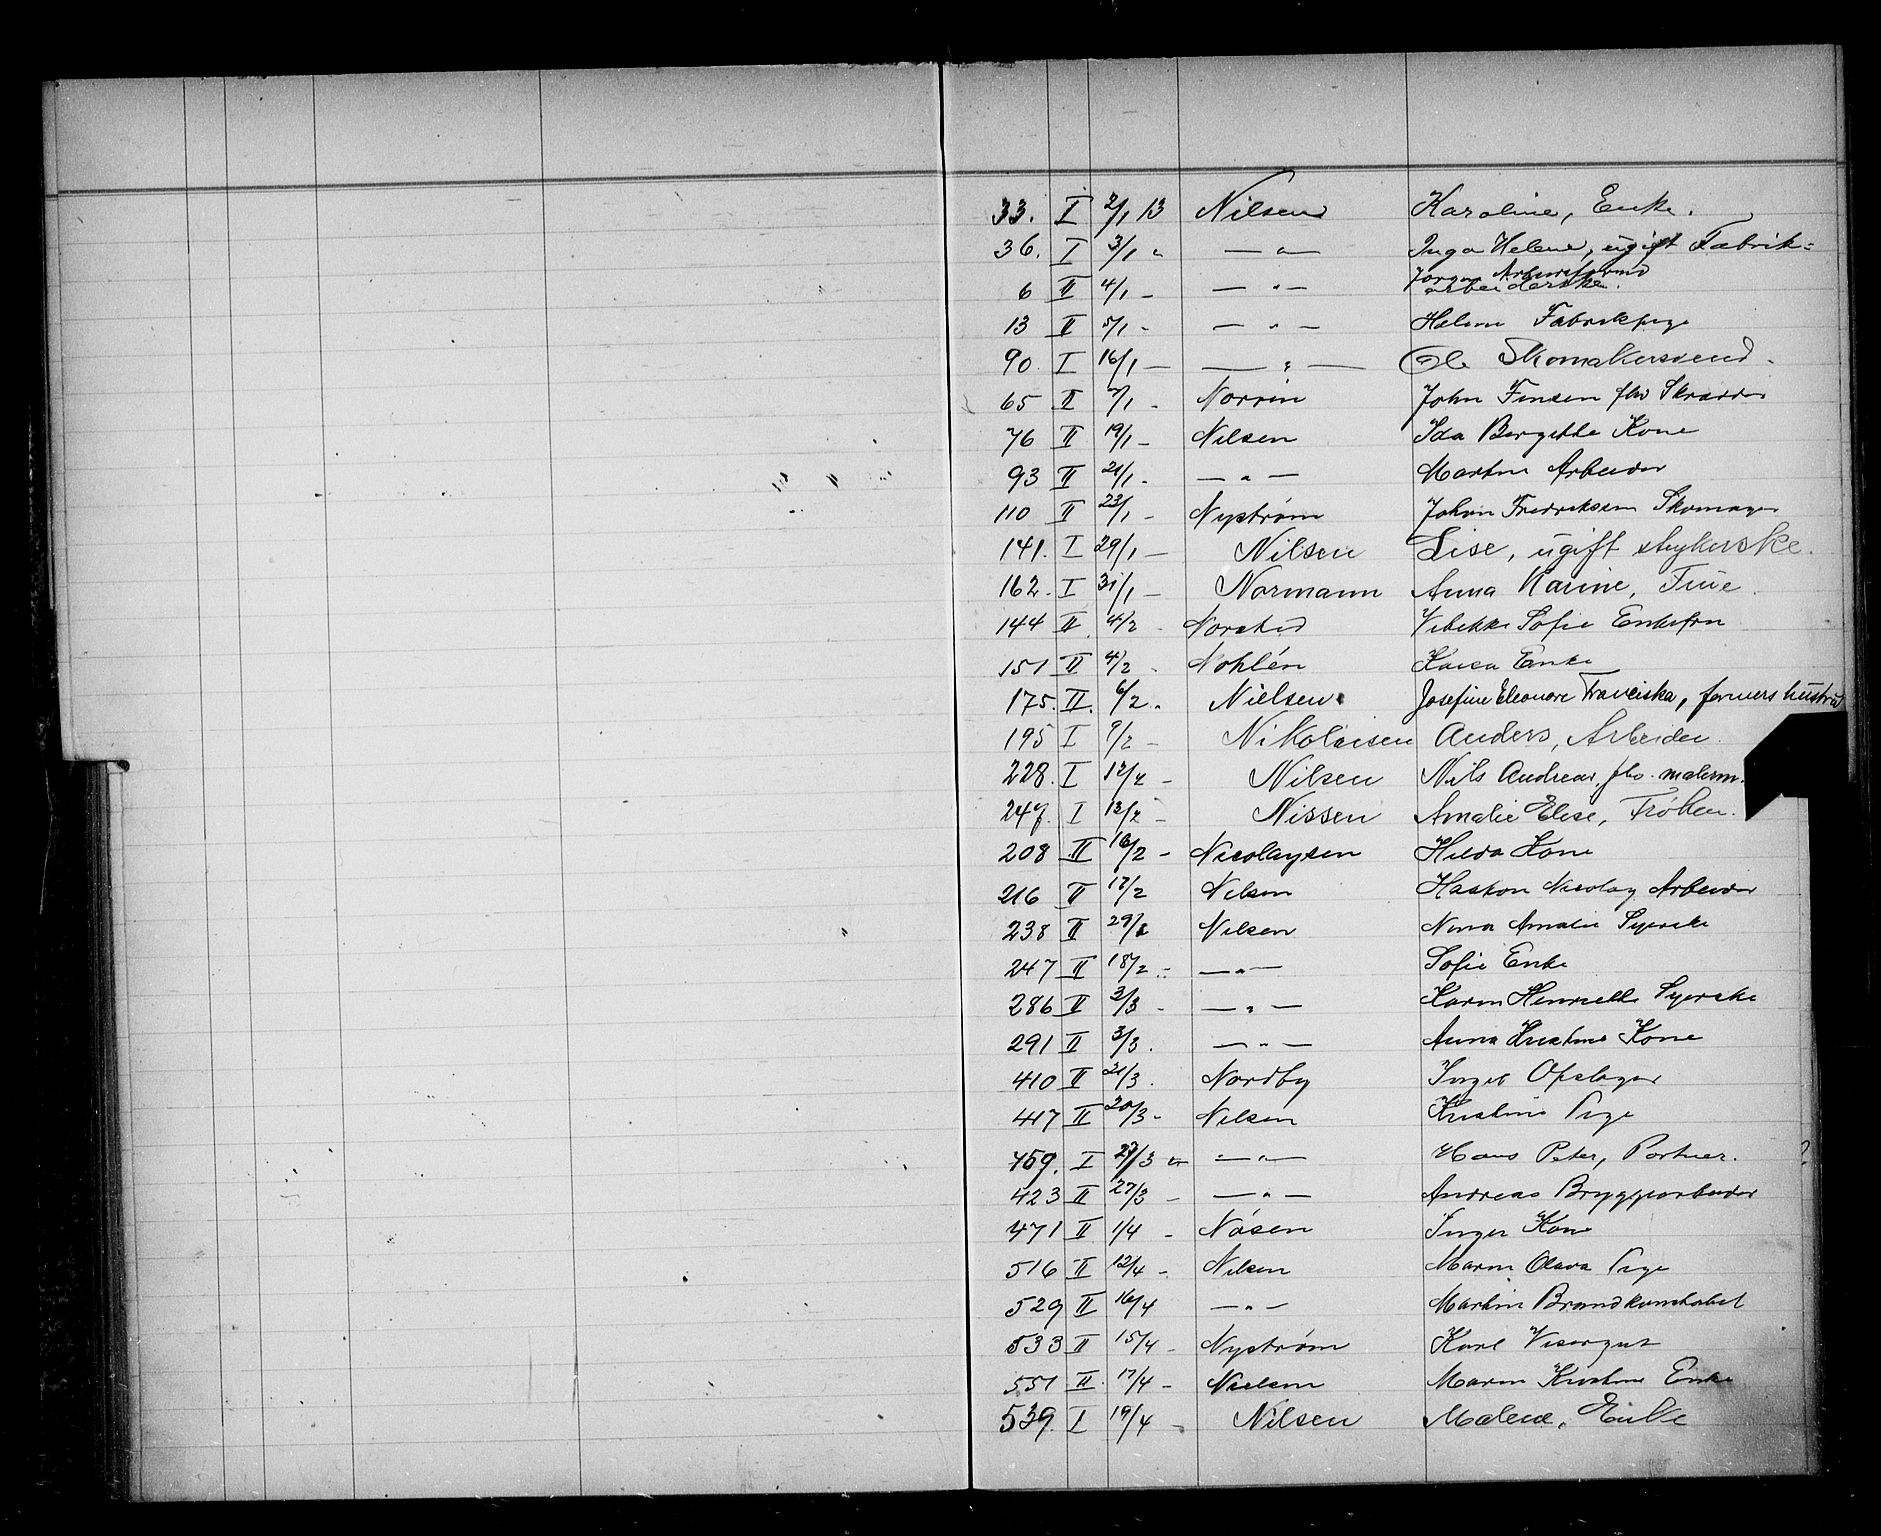 33. I 2/1 13 Nilsen Karoline, Enke.
36. I 3/1 " — " — Inga Helene, ugift Fabrik=
arbeiderske.
6 II 4/1 - — " — Jørgen Arbeidsformd
13 II 5/1 - — " — Helene Fabrikpige
90. I 16/1 — — " — Ole Skomakersvend.
65 II 7/1 - Norrin John Finsen fhv Skrædder
76 II 19/1 - Nilsen Ida Bergitte Kone
93 II 21/1 - — " — Martin Arbeider
110 II 23/1 - Nystrøm Johan Fredriksen Skomager
141. I 29/1 — Nilsen Lise, ugift strykerske.
162. I 31/1 — Normann Anna Karine, Frue.
144 II 4/2 - Norsted Vibekke Sofie Enkefru
151 II 4/2 - Nohlén Kaisa Enke
175. II. 6/2 - Nielsen Josefine Eleonore Franciska, formers hustru
195 I 9/2 - Nikolaisen Anders, Arbeider.
228. I 12/2 - Nilsen Nils Andreas, fhv. malerm.
247. I 13/2 - Nissen Amalie Elise, Frøken.
208 II 16/2 - Nicolaysen Hilda Kone
216 II 17/2 Nilsen Haakon Nicolay Arbeider
238 II 29/1 Nilsen Nina Amalie Syerske
247 II 18/2 - — " — Sofie Enke
286 II 2/3 - — " — Karen Henriette Syerske
291 II 3/3. — " — Anna Kristine Kone
410 II 21/3. Nordby Inger Opslager
417 II 20/3 - Nilsen Kristine Pige
459. I 27/3 — " — Hans Peter, Portner. ?
423 II 27/3 - — " — Andreas Bryggearbeider
471 II 1/4 - Nøsen Inger Kone
516 II 12/4 - Nilsen Maren Olava Pige
529 II 16/4 — " — Martin Brandkonstabel
533 II 15/4 - Nystrøm Karl Visergut
551 II 17/4 - Nielsen Maren Kristine Enke
539. I 19/4 - Nilsen Malene, Enke